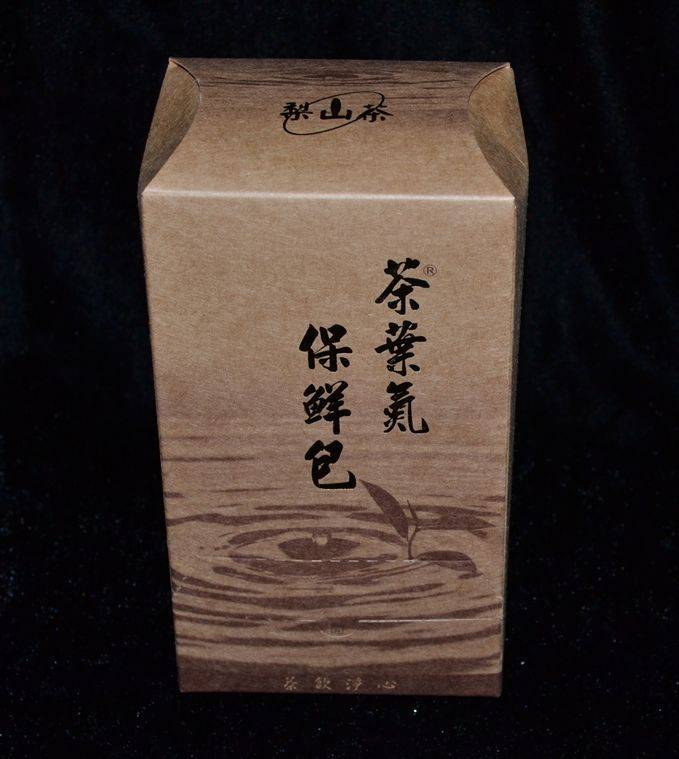 梨山茶
茶葉氣®
保鮮包
茶飲淨心